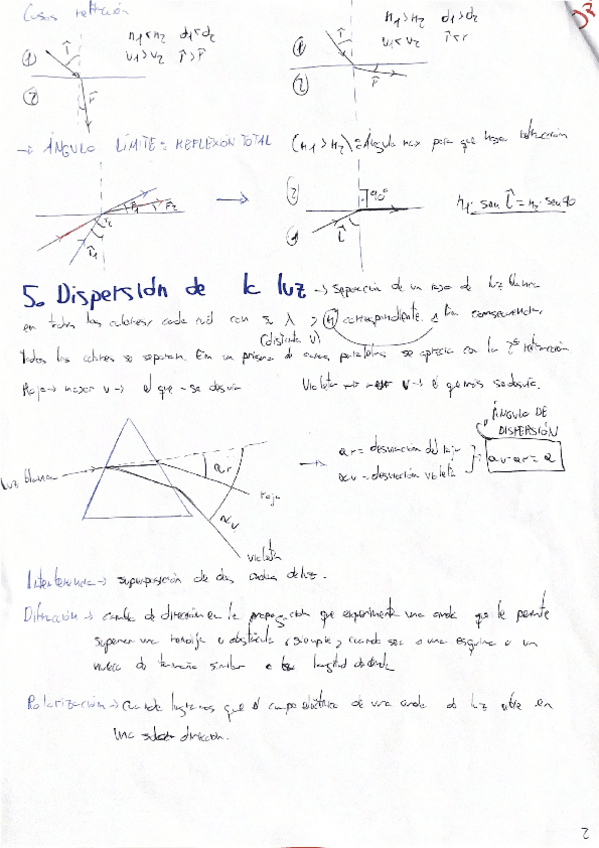 Casos refracción
n1<n2 d1<d2
v1>v2 î>r̂
n1>n2 d1>d2
v1<v2 î<r
1
2
î
r̂
1
2
î
r̂
→ ÁNGULO LÍMITE = REFLEXIÓN TOTAL (n1>n2) = Ángulo max para que haya refracción
2
1
90º
L̂
n1· sen L̂ = n2· sen90
5. Dispersión de la luz → Separación de un rayo de luz blanca
en todos los colores, cada cual con su λ y n correspondiente. En consecuencia,
(distinta v)
todos los colores se separan. En un prisma de caras paralelas se aprecia con la 2º refracción
Rojo → mayor v → el que - se desvía Violeta → v → el que más se desvía.
luz blanca
αr
αv
rojo
violeta
→ αr = desviación del rojo
αv = desviación violeta
ÁNGULO DE
DISPERSIÓN
αv-αr = α
Interferencia → superposición de dos ondas de luz.
Difracción → cambio de dirección en la propagación que experimenta una onda que le permite
superar una rendija u obstáculo (siempre y cuando sea a una esquina o un
de tamaño similar a su longitud de onda
Polarización → Cuando logramos que el campo eléctrico de una onda de luz vibre en
una dirección.
2